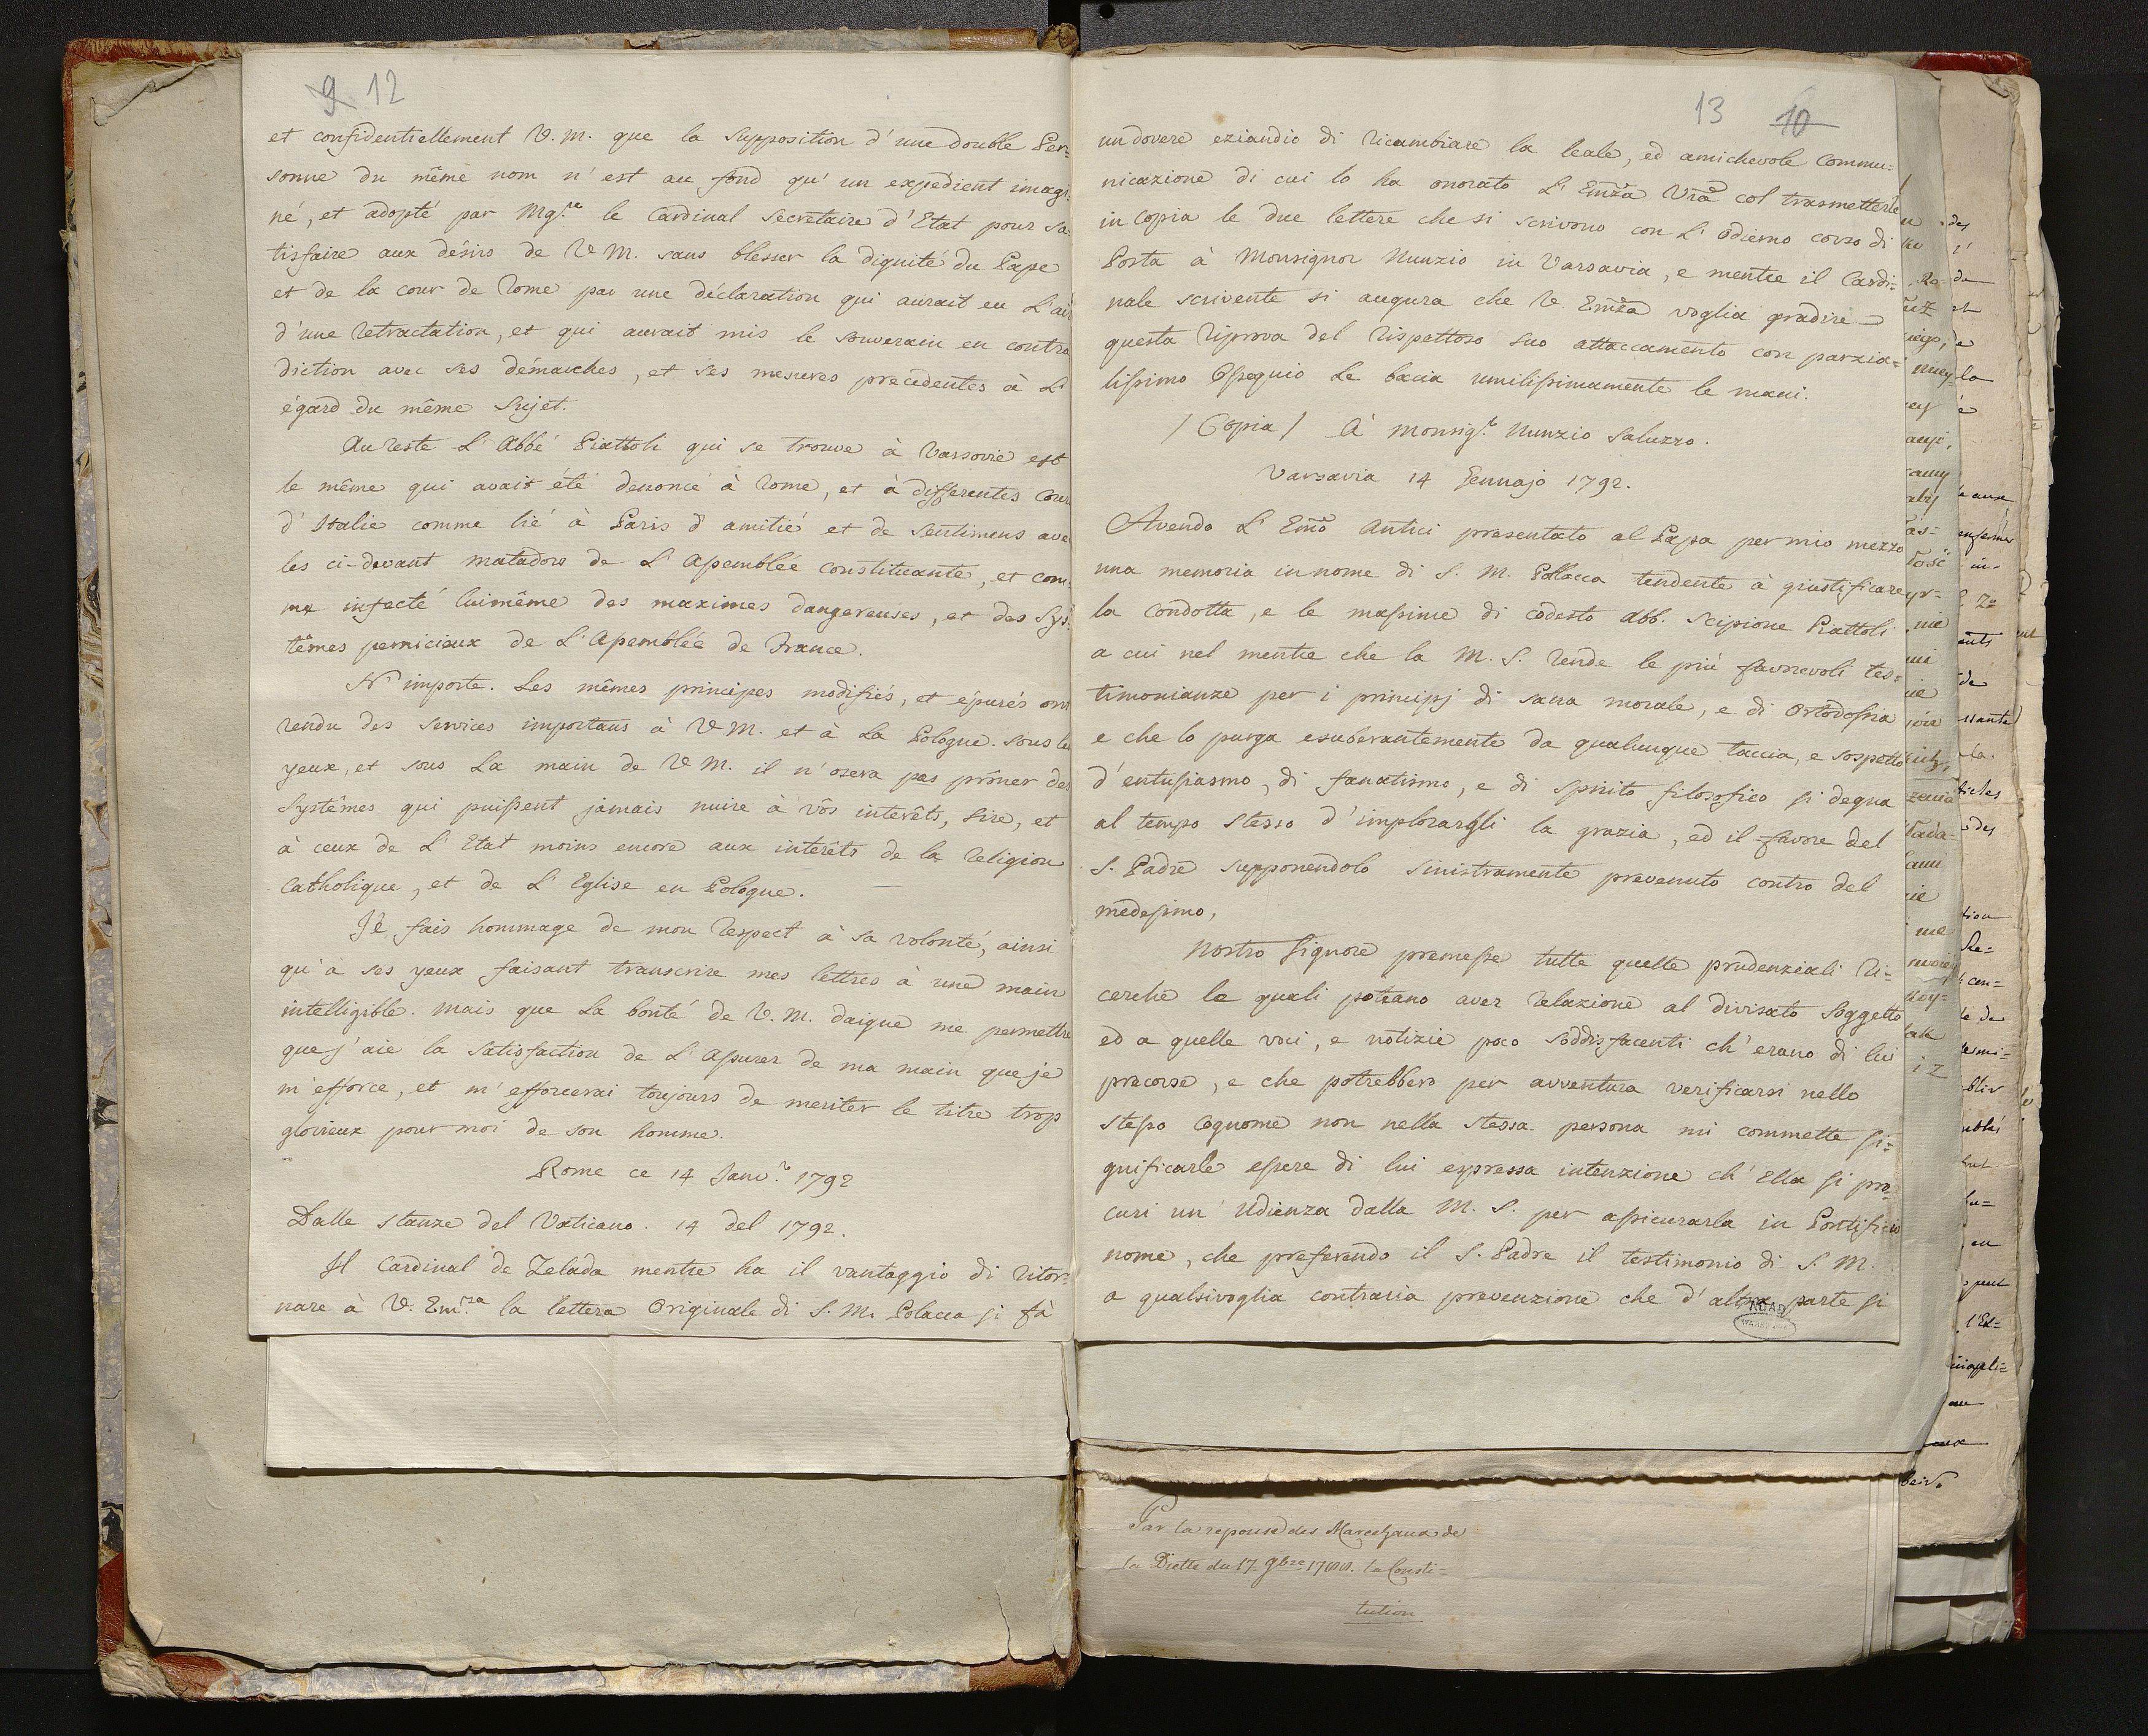 9 12
et confidentiellement V. M. que la supposition d'une double Per=
sonne du même nom n'est au fond qu'un expedient imagi
né, et adopté par Mgr. le Cardinal Secretaire d'Etat pour sa
tisfaire aux désirs de V M. sans blesser la dignité du Pape
et de la cour de Rome par une déclaration qui aurait eu L'air
d'une retractation, et qui aurait mis le souverain en contra
diction avec ses démarches, et ses mesures precedentes à L'
égard du même Sujet.
Au reste L'Abbé Piattoli qui se trouve à Varsovie est
le même qui avait été denoncé à Rome, et à differentes Cour
d'Italie comme lié à Paris d'amitié et de Sentimens ave
les ci-devant matadors de L'Assemblée constituante, et com
me infecté luimême des maximes dangereuses, et des Sys
têmes pernicieux de L'Assemblée de France.
N'importe. Les mêmes principes modifiés, et épurés ont
rendu des services importans à V M. et à La Pologne. Sous les
yeux, et sous La main de V M. il n'osera pas prôner des
Systêmes qui puissent jamais nuire à vôs interêts, Sire, et
à ceux de L'Etat moins encore aux interêts de la Religion
Catholique, et de L'Eglise en Pologne.
Je fais hommage de mon respect à sa volonté, ainsi
qu'à ses yeux faisant transcrire mes lettres à une main
intelligible. Mais que La bonté de V. M. daigne me permettre
que j'aie la Satisfaction de L'Assurer de ma main que je
m'efforce, et m'efforcerai toujours de meriter le titre trop
glorieux pour moi de son homme.
Rome ce 14 Janv.r 1792
Dalle stanze del Vaticano. 14 del 1792.
Il Cardinal de Zelada mentre ha il vantaggio di ritor=
nare à V. Em.za la lettera Originale di S. M. Polacca si fà
13 10
un dovere eziandio di ricambiare la leale, ed amichevole Commu=
nicazione di cui lo ha onorato L'Emza Vra col trasmetterle
in Copia le due lettere che si scrivono con L'Odierno corso di
Posta à Monsignor Nunzio in Varsavia, e mentre il Cardi=
nale scrivente si augura che V. Emza voglia gradire
questa riprova del rispettoso suo attaccamento con parzia=
lissimo Ossequio Le bacia umilissimamente le mani.
/ Copia / À Monsig.r Nunzio Saluzzo.
Varsavia 14 Gennajo 1792.
Avendo L'Emo Antici presentato al Papa per mio mezzo
una memoria in nome di S. M. Pollacca tendente à giustificare
la Condotta, e le massime di codesto Abb. Scipione Piattoli
a cui nel mentre che la M. S. rende le più favorevoli tes=
timonianze per i principj di sana morale, e di Ortodossia
e che lo purga esuberantemente da qualunque taccia, e sospetto
d'entusiasmo, di fanatismo, e di spirito filosofico si degna
al tempo stesso d'implorargli la grazia, ed il favore del
S. Padre supponendolo sinistramente prevenuto contro del
medesimo,
Nostro Signore premesse tutte quelle prudenziali ri=
cerche le quali poteano aver relazione al divisato Soggetto
ed a quelle voci, e notizie poco soddisfacenti ch'erano di lui
precorse, e che potrebbero per avventura verificarsi nello
stesso Cognome non nella stessa persona mi commette si=
gnificarle essere di lui espressa intenzione ch'Ella si pro
curi un'Udienza dalla M. S. per assicurarla in Pontificio
nome, che preferendo il S. Padre il testimonio di S. M.
a qualsivoglia contraria prevenzione che d'altra parte si
AGAD
Par la reponse des Marechaux de
la Diette du 17. 9bre 1788. la Consti=
tution